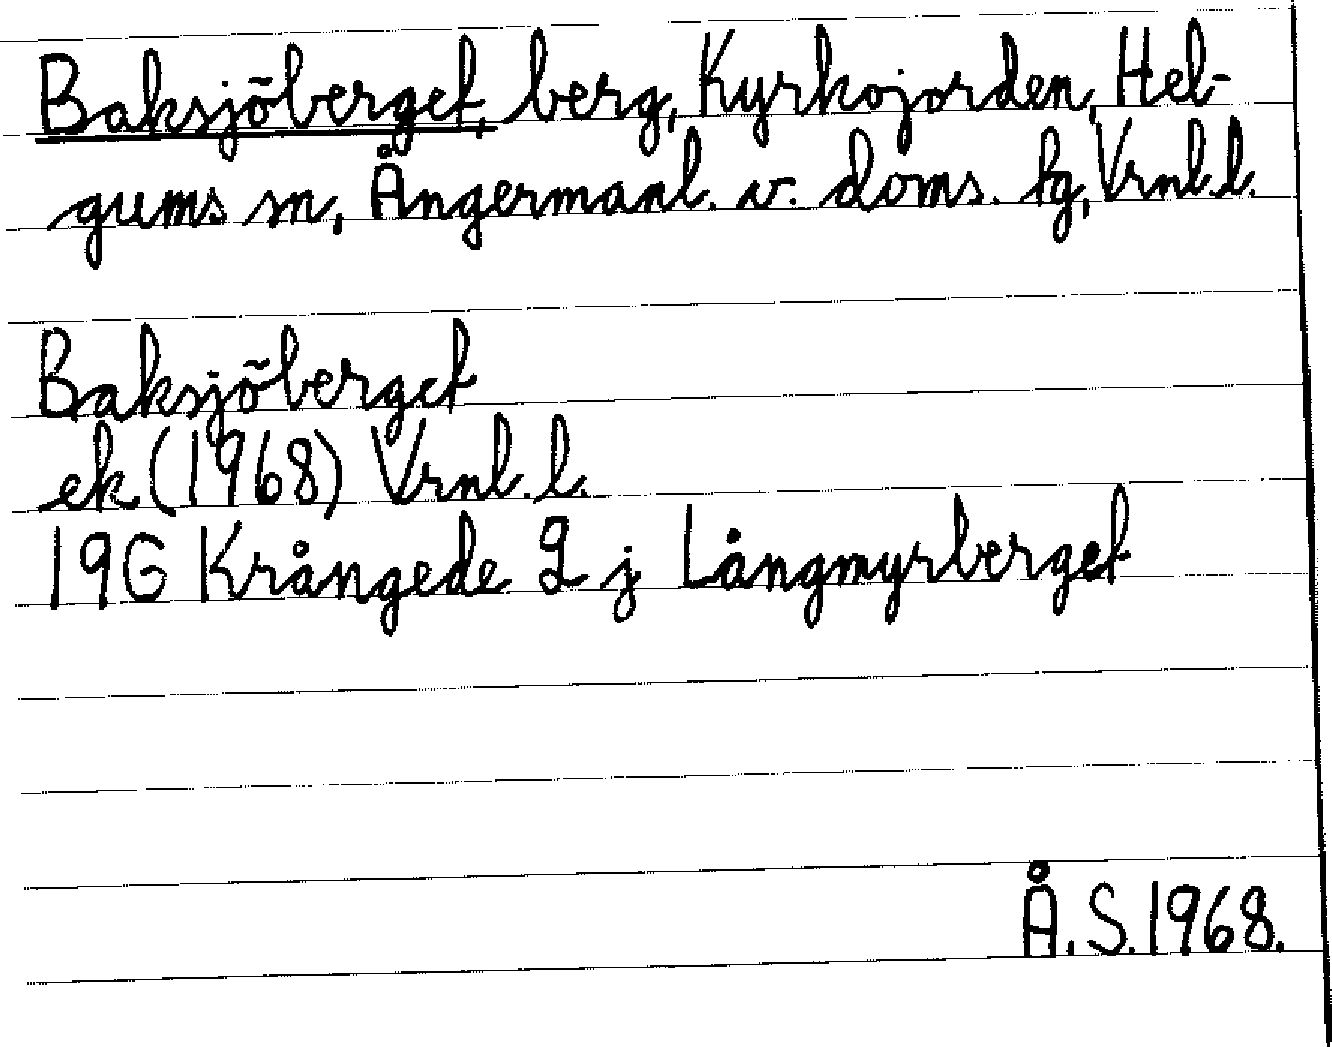 Baksjöberget, berg, Kyrkojorden, Hel-
gums sn, Ångermanl. v. doms. fg, Vrnl.l.
Baksjöberget
ek (1968) Vrnl.l.
19G Krångede 2 j Långmyrberget
Å.S.1968.